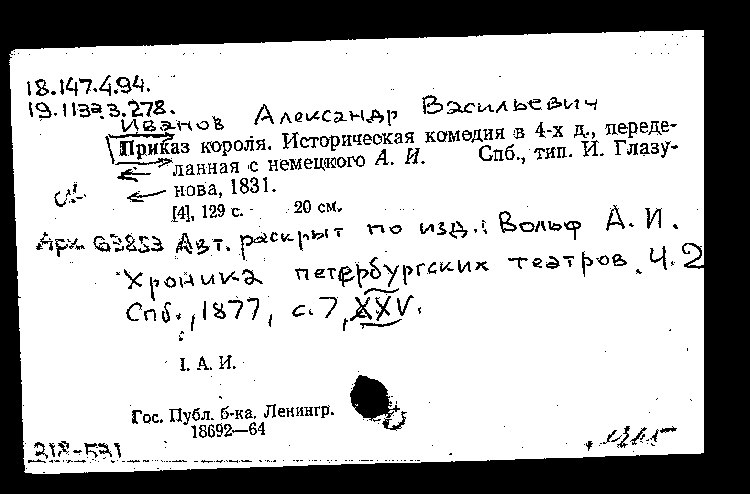 18.147.4.94.
19.113а.3.278.
Иванов Александр Васильевич
Приказ короля. Историческая комедия в 4-х д., переде-
ланная с немецкого А. И. Спб., тип. И. Глазу-
нова, 1831.
[4], 129 с. 20 см.
Арх. 63853 Авт. раскрыт по изд.: Вольф А. И.
Хроника петербургских театров. Ч. 2
Спб., 1877, с. 7, XXV.
I. А. И.
Гос. Публ. б-ка, Ленингр.
18692—64
318-531